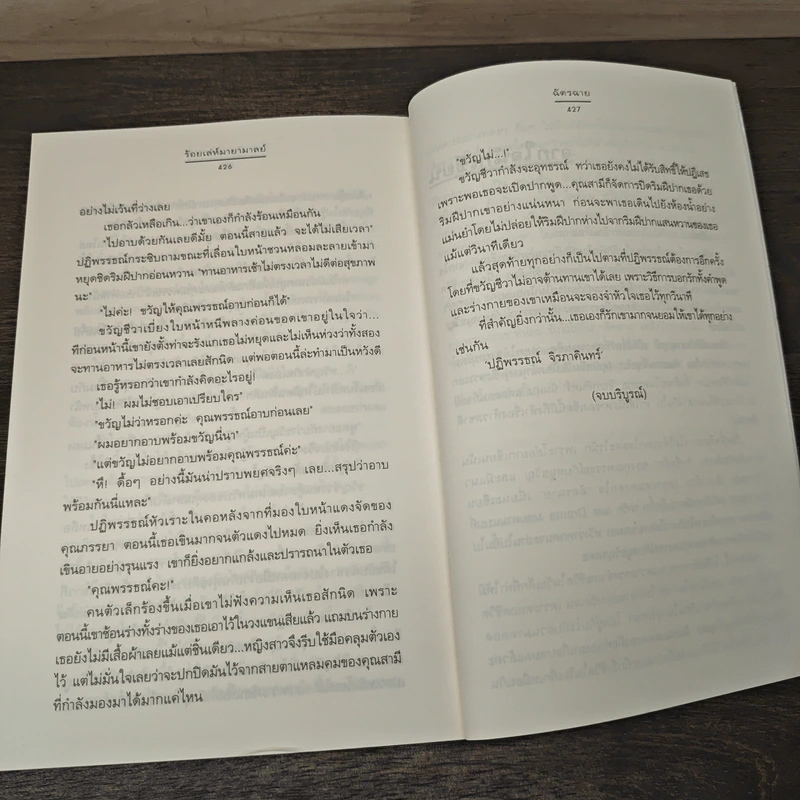 ร้อยเล่ห์มายามาลย์
426
อย่างไม่เว้นที่ว่างเลย
เธอกลัวเหลือเกิน...ว่าเขาเองก็กำลังร้อนเหมือนกัน
"ไปอาบด้วยกันเลยดีมั้ย ตอนนี้สายแล้ว จะได้ไม่เสียเวลา"
ปฏิพรรธณ์กระซิบถามขณะที่เลื่อนใบหน้าชวนหลอมละลายเข้ามา
หยุดชิดริมฝีปากอ่อนหวาน "ทานอาหารเช้าไม่ตรงเวลาไม่ดีต่อสุขภาพ
นะ"
"ไม่ค่ะ! ขวัญให้คุณพรรธณ์อาบก่อนก็ได้"
ขวัญชีวาเบี่ยงใบหน้าหนีพลางค่อนขอดเขาอยู่ในใจว่า...
ทีก่อนหน้านี้เขายังตั้งท่าจะรังแกเธอไม่หยุดและไม่เห็นห่วงว่าทั้งสอง
จะทานอาหารไม่ตรงเวลาเลยสักนิด แต่พอตอนนี้ล่ะทำมาเป็นหวังดี
เธอรู้หรอกว่าเขากำลังคิดอะไรอยู่!
"ไม่! ผมไม่ชอบเอาเปรียบใคร"
"ขวัญไม่ว่าหรอกค่ะ คุณพรรธณ์อาบก่อนเลย"
"ผมอยากอาบพร้อมขวัญนี่นา"
"แต่ขวัญไม่อยากอาบพร้อมคุณพรรธณ์ค่ะ"
"หึ! ดื้อๆ อย่างนี้มันน่าปราบพยศจริงๆ เลย...สรุปว่าอาบ
พร้อมกันนี่แหละ"
ปฏิพรรธณ์หัวเราะในคอหลังจากที่มองใบหน้าแดงจัดของ
คุณภรรยา ตอนนี้เธอเขินมากจนตัวแดงไปหมด ยิ่งเห็นเธอกำลัง
เขินอายอย่างรุนแรง เขาก็ยิ่งอยากแกล้งและปรารถนาในตัวเธอ
"คุณพรรธณ์คะ!"
คนตัวเล็กร้องขึ้นเมื่อเขาไม่ฟังความเห็นเธอสักนิด เพราะ
ตอนนี้เขาช้อนร่างทั้งร่างของเธอเอาไว้ในวงแขนเสียแล้ว แถมบนร่างกาย
เธอยังไม่มีเสื้อผ้าเลยแม้แต่ชิ้นเดียว...หญิงสาวจึงรีบใช้มือคลุมตัวเอง
ไว้ แต่ไม่มั่นใจเลยว่าจะปกปิดมันไว้จากสายตาแหลมคมของคุณสามี
ที่กำลังมองมาได้มากแค่ไหน
ฉัตรฉาย
427
"ขวัญไม่...!"
ขวัญชีวากำลังจะอุทธรณ์ ทว่าเธอยังคงไม่ได้รับสิทธิ์ให้ปฏิเสธ
เพราะพอเธอจะเปิดปากพูด...คุณสามีก็จัดการปิดริมฝีปากเธอด้วย
ริมฝีปากเขาอย่างแน่นหนา ก่อนจะพาเธอเดินไปยังห้องน้ำอย่าง
แม่นยำโดยไม่ปล่อยให้ริมฝีปากห่างไปจากริมฝีปากแสนหวานของเธอ
แม้แต่วินาทีเดียว
แล้วสุดท้ายทุกอย่างก็เป็นไปตามที่ปฏิพรรธณ์ต้องการอีกครั้ง
โดยที่ขวัญชีวาไม่อาจต้านทานเขาได้เลย เพราะวิธีการบอกรักทั้งคำพูด
และร่างกายของเขาเหมือนจะจองจำหัวใจเธอไว้ทุกวินาที
ที่สำคัญยิ่งกว่านั้น...เธอเองก็รักเขามากจนยอมให้เขาได้ทุกอย่าง
เช่นกัน
'ปฏิพรรธณ์ จิรภาคินทร์'
(จบบริบูรณ์)